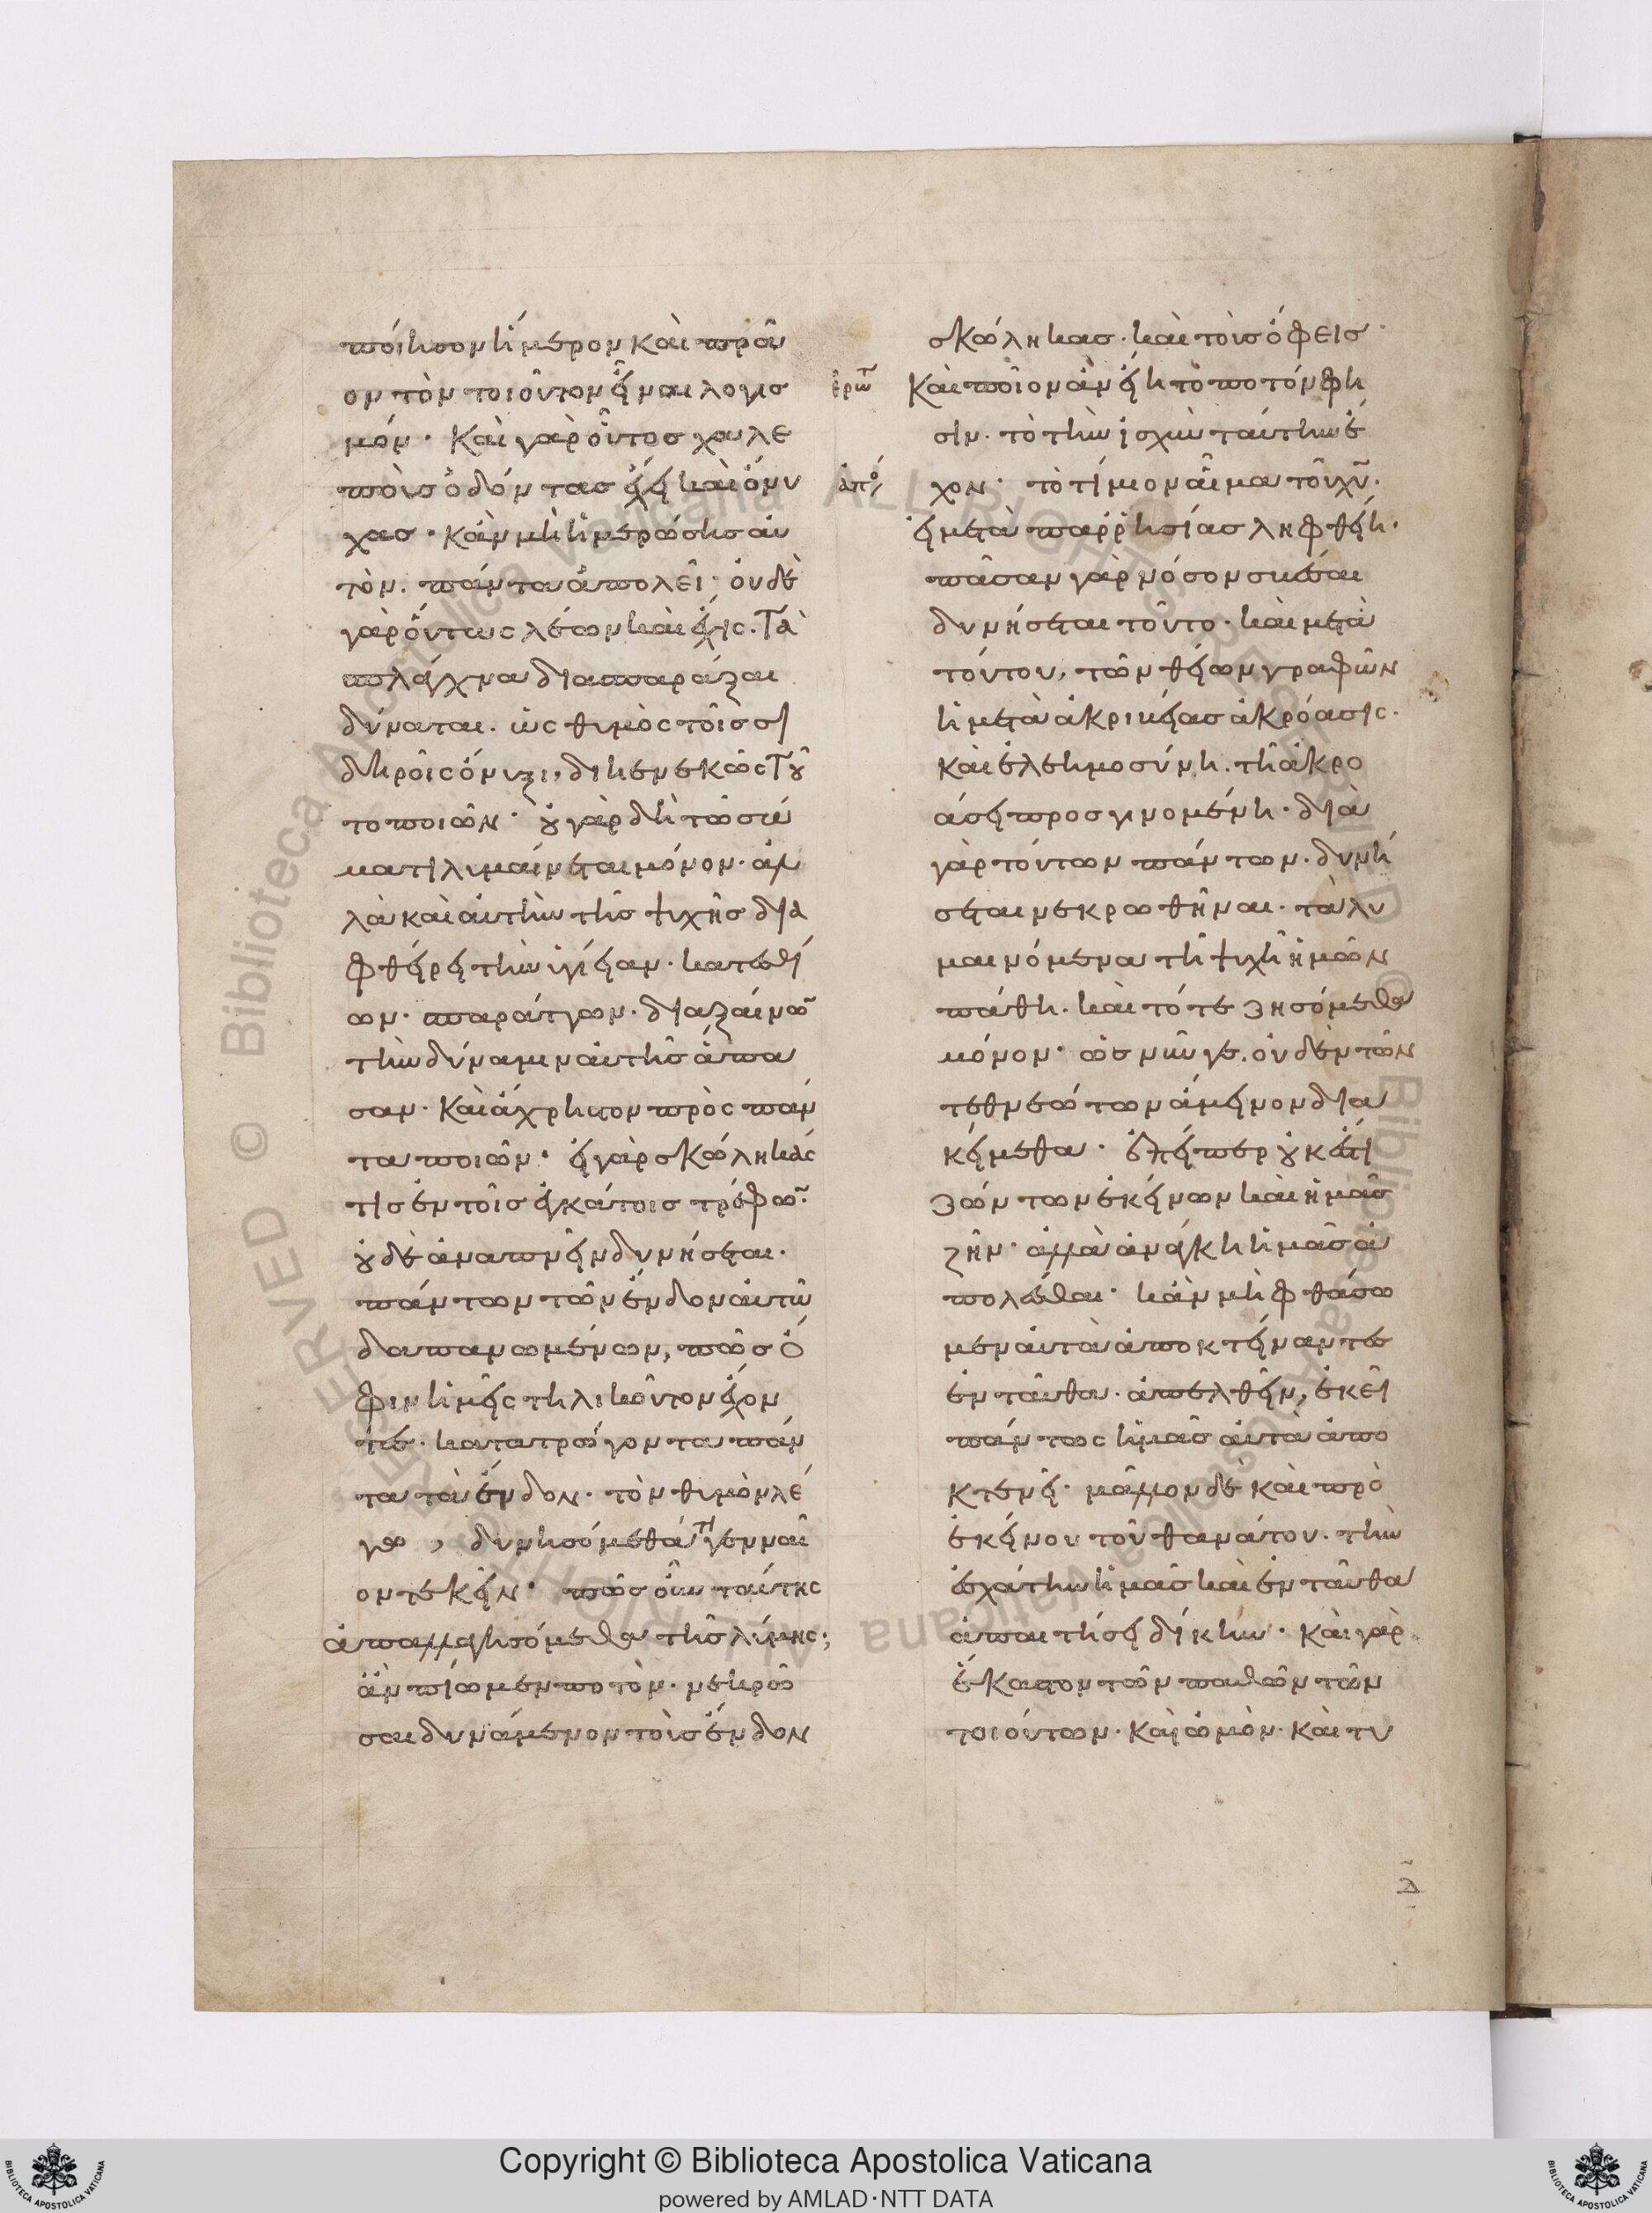 ποίησον ἥμερον καὶ πρᾶ
ον τὸν τοιοῦτον εἶναι λογισ
μόν· Καὶ γὰρ οὗτος χαλε
ποὺς ὀδόντας ἔχει καὶ ὄνυ
χας· κἂν μὴ ἡμερώσης αὐ
τὸν. πάντα ἀπολεῖ· οὐδὲ
γὰρ οὕτως λέων καὶ ἔχις. Τὰ
σπλάγχνα διασπαράξαι
δύναται. ὡς θυμὸς τοῖς σι
δηροῖς ὄνυξι, διηνεκῶς τοῦ
το ποιῶν· οὐ γὰρ δὴ τῶ σώ
ματι λυμαίνεται μόνον· ἀλ
λὰ καὶ αὐτὴν τῆς ψυχῆς δια
φθείρει τὴν ὑγίειαν· κατεσθί
ων· σπαράττων· διαξαίνων
τὴν δύναμιν αὐτῆς ἅπα
σαν· Καὶ ἄχρηστον πρὸς πάν
τα ποιῶν· εἰ γὰρ σκώληκάς
τις ἐν τοῖς ἐγκάτοις τρέφων·
οὐδὲ ἀναπνεῖν δυνήσεται·
πάντων τῶν ἔνδον αὐτῶ
δαπανωμένων, πῶς ὁ
φιν ἡμεῖς τηλικοῦτον ἔχον
τες· κατατρώγοντα πάν
τα τὰ ἔνδον· τὸν θυμὸν λέ
γω, δυνησόμεθά τι γενναῖ
ον τεκεῖν· πῶς οὖν ταύτης
ἀπαλλαγησόμεθα τῆς λύμης;
ἂν πίωμεν ποτὸν· νεκρῶ
σαι δυνάμενον τοὺς ἔνδον
σκώληκας· καὶ τοὺς ὄφεις·
ἐρώτ Καὶ ποῖον ἂν εἴη τὸ ποτόν φη
σιν· τὸ τὴν ἰσχὺν ταύτην ἔ
ἀπό χον· τὸ τίμιον αἷμα τοῦ χυ·
εἰ μετὰ παρρησίας ληφθείη·
πᾶσαν γὰρ νόσον σβέσαι
δυνήσεται τοῦτο· καὶ μετὰ
τούτου, τῶν θείων γραφῶν
ἡ μετὰ ἀκριβείας ἀκρόασις·
καὶ ἐλεημοσύνη. τῆ ἀκρο
άσει προσγινομένη· διὰ
γὰρ τούτων πάντων. δυνή
σεται νεκρωθῆναι· τὰ λυ
μαινόμενα τῆ ψυχῆ ἡμῶν
πάθη. καὶ τότε ζησόμεθα
μόνον· ὡς νῦν γε. οὐδὲν τῶν
τεθνεώτων ἄμεινον δια
κείμεθα· ἐπείπερ οὐκ ἔστι
ζώντων ἐκείνων καὶ ἡμᾶς
ζῆν· ἀλλὰ ἀνάγκη ἡμᾶς ἀ
πολέσθαι· κἂν μὴ φθάσω
μεν αὐτὰ ἀποκτείναντες
ἐνταῦθα· ἀπελθεῖν, ἐκεῖ
πάντως ἡμᾶς αὐτὰ ἀπο
κτενεῖ· μᾶλλον δὲ καὶ πρὸ
ἐκείνου τοῦ θανάτου. τὴν
ἐσχάτην ἡμᾶς καὶ ἐνταῦθα
ἀπαιτήσει δίκην· Καὶ γὰρ
ἕκαστον τῶν παθῶν τῶν
τοιούτων· καὶ ὠμὸν· καὶ τυ
δ
Copyright © Biblioteca Apostolica Vaticana
powered by AMLAD·NTT DATA